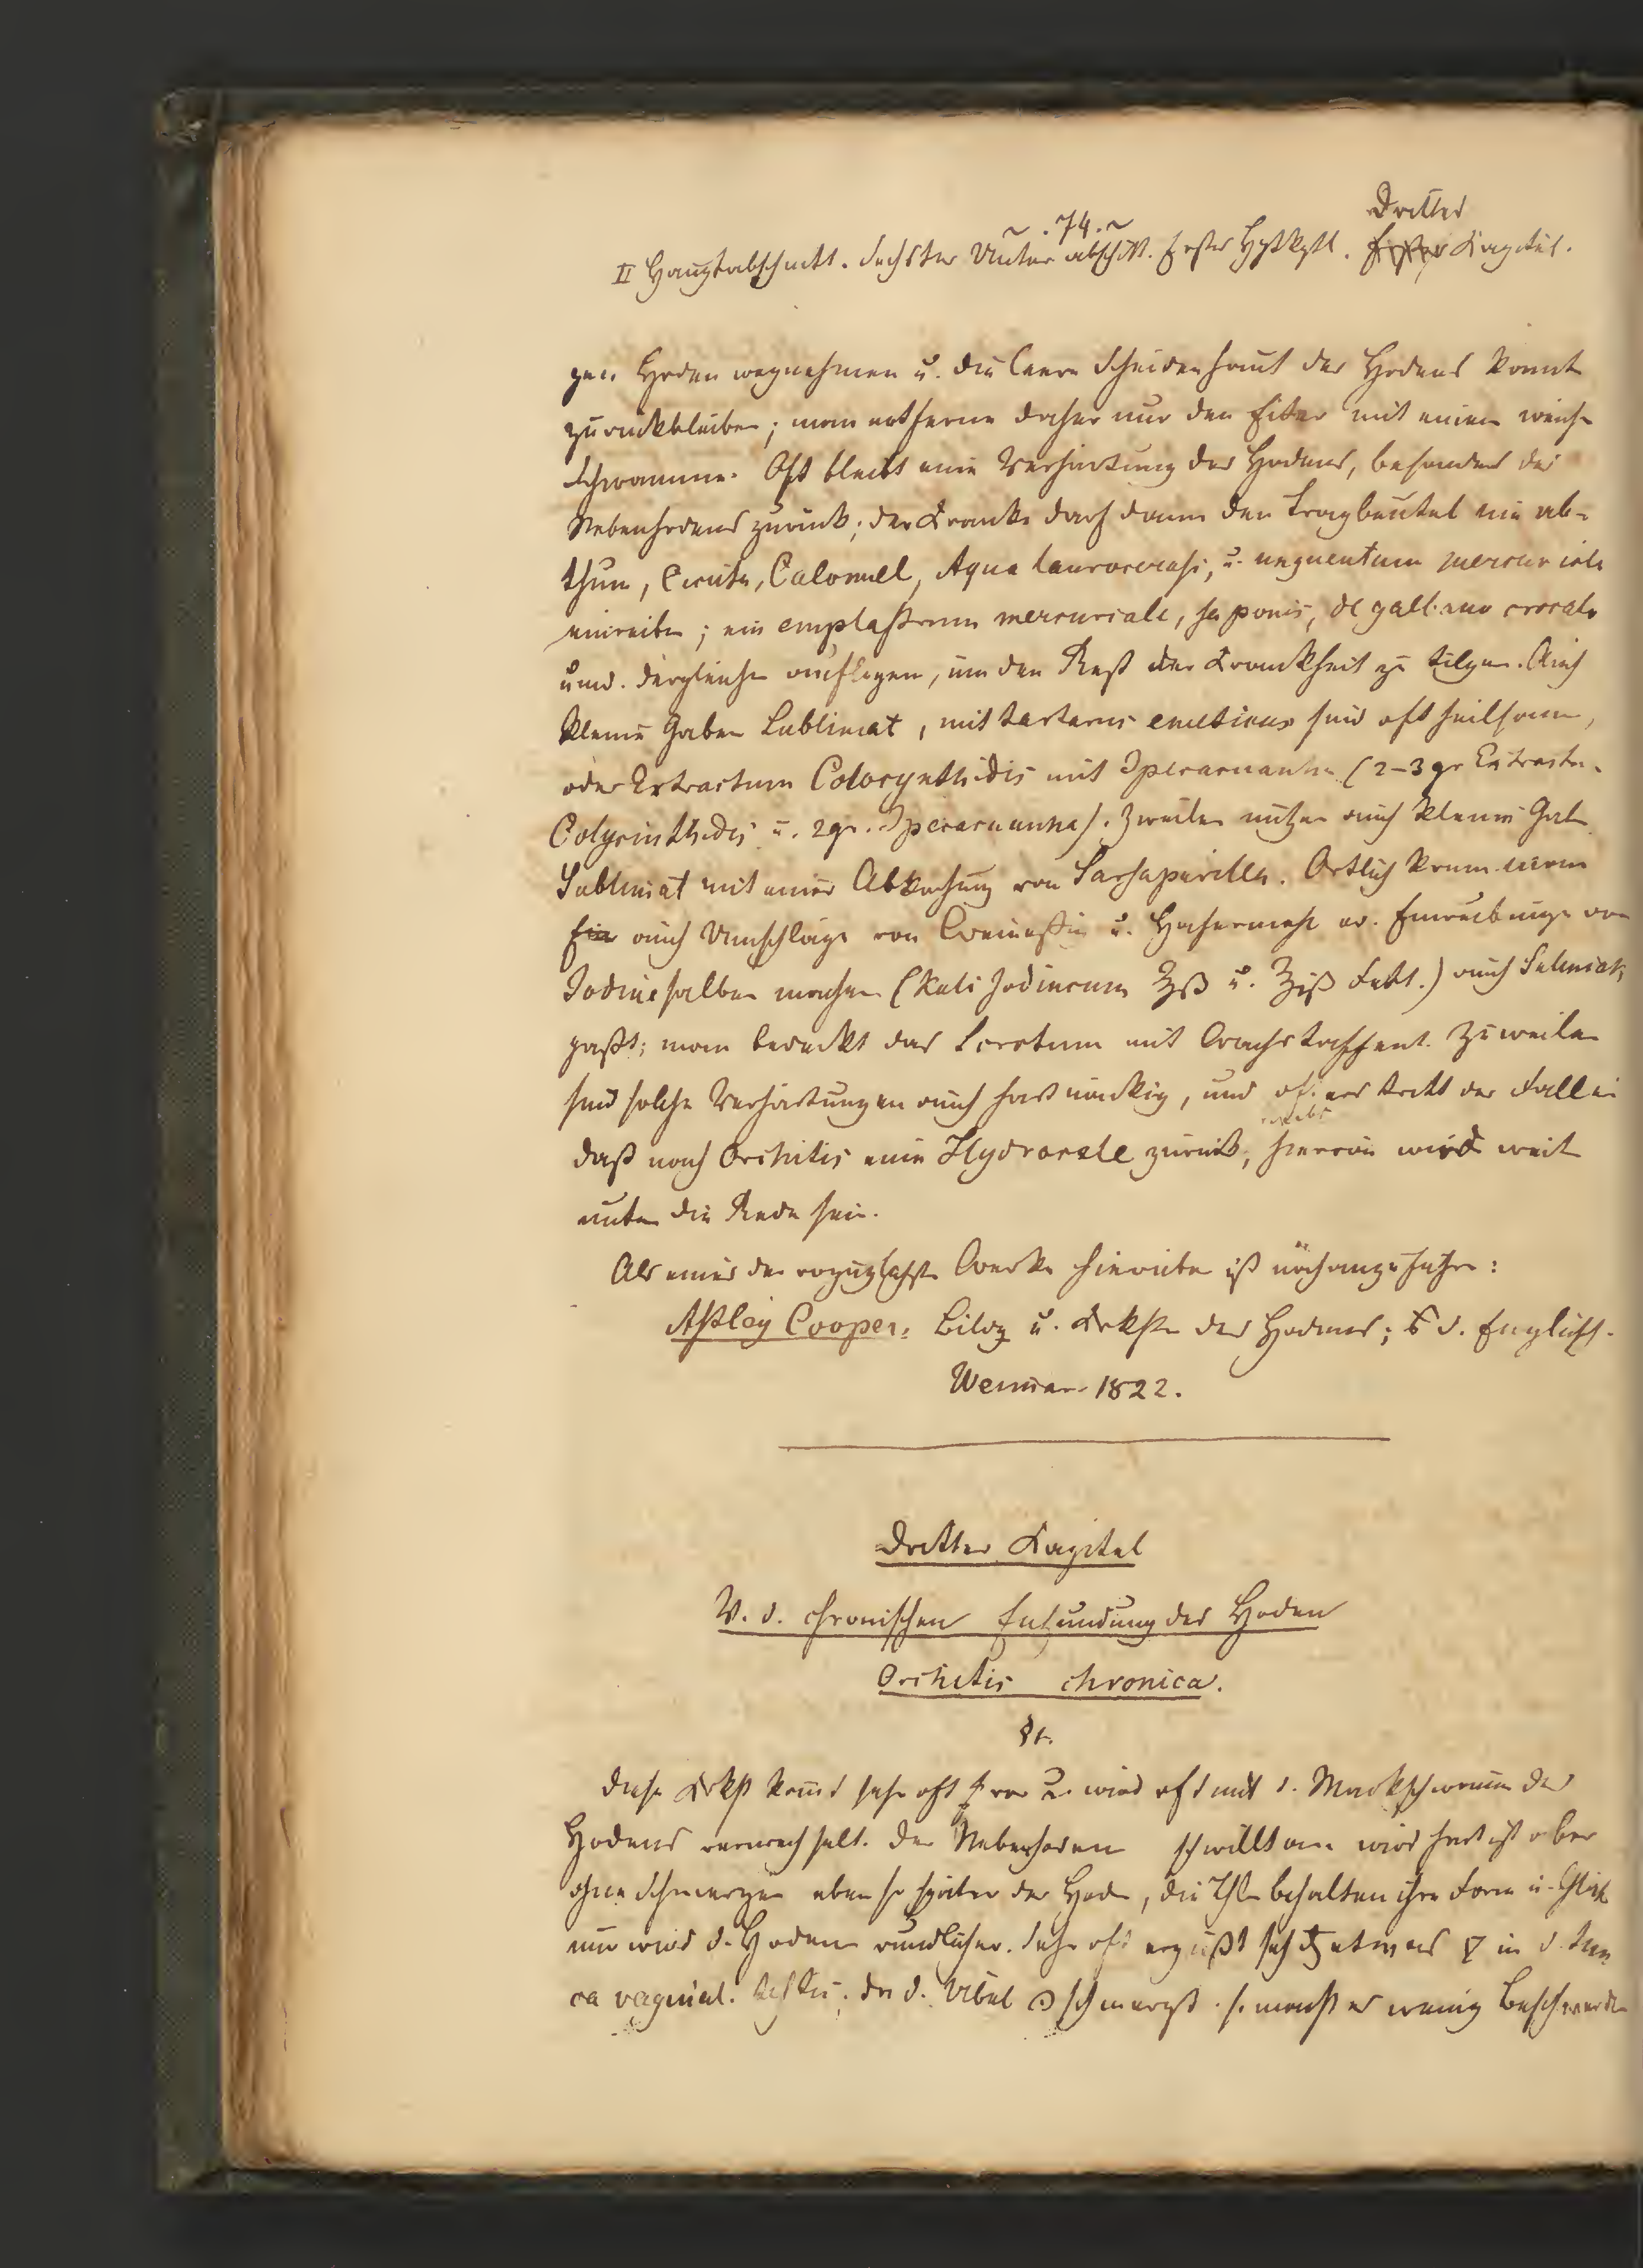 ~ . 74. ~
Drittes
II Hauptabschnitt. Sechster Unterabschtt. Erstes Hptkptl. Erstes Kapitel.
gen Hoden wegnehmen u. die leere Scheidenhaut des Hodens konnte
zurückbleiben; man entferne daher nur den Eiter mit einem weichen
Schwamme. Oft bleibt eine Verhärtung des Hodens, besonders des
Nebenhodens zurück; der Kranke darf dann den Tragbeutel nie ab-
thun, Cicuta, Calomel, Aqua laurocerasi, u. unguentum mercuriale
einreiben; ein emplastrum mercuriale, saponis, de galbano crocato
und dergleichen auflegen, um den Rest der Krankheit zu tilgen. Auch
kleine Gaben Sublimat, mit tartarus emeticus sind oft heilsam,
oder Extractum Colocynthidis mit Ipecacuanha (2-3 gr Extractu.
Colycinthidis u. 2 gr. Ipecacuanha). Zweilen nützen auch kleine Gaben
Sublimat mit einer Abkochung von Sarsaparilla. Örtlich kann man
auch Umschläge von u. Hafermehl od. Einreibungen von
Jodinesalben machen (Kali Jodinicum ʒß u. ʒiß Fett.) auch Salmiak
paßt; man bedeckt das Scrotum mit Wachstaffent. Zuweilen
sind solche Verhärtungen auch hartnäckig, und öfters tritt der Fall ein
bleibt
daß nach Orchitis eine Hydrocele zurück, hiervon wird weiter
unten die Rede sein.
Als eines der vorzüglichste Werke hierüber ist noch anzuführen:
Astley Cooper, Bildg u. Krkhten des Hodens; d. Englisch.
Weimar 1822.
Drittes Kapitel
V. d. chronischen Entzündung des Hoden
Orchitis chronica.
§1.
Diese Krkht kommt sehr oft vor u. wird oft mit d. Markschwamm des
Hodens verwechselt. Der Nebenhoden schwillt an wird hart ist aber
ohne Schmerzen eben so später der Hode, die Thle behalten ihre Form u.
nur wird d. Hoden rundlicher. Sehr oft ergießt sich etwas in d. tuni
ca vaginal. testis. Da d. Übel schmerzt so macht es wenig Beschwerden